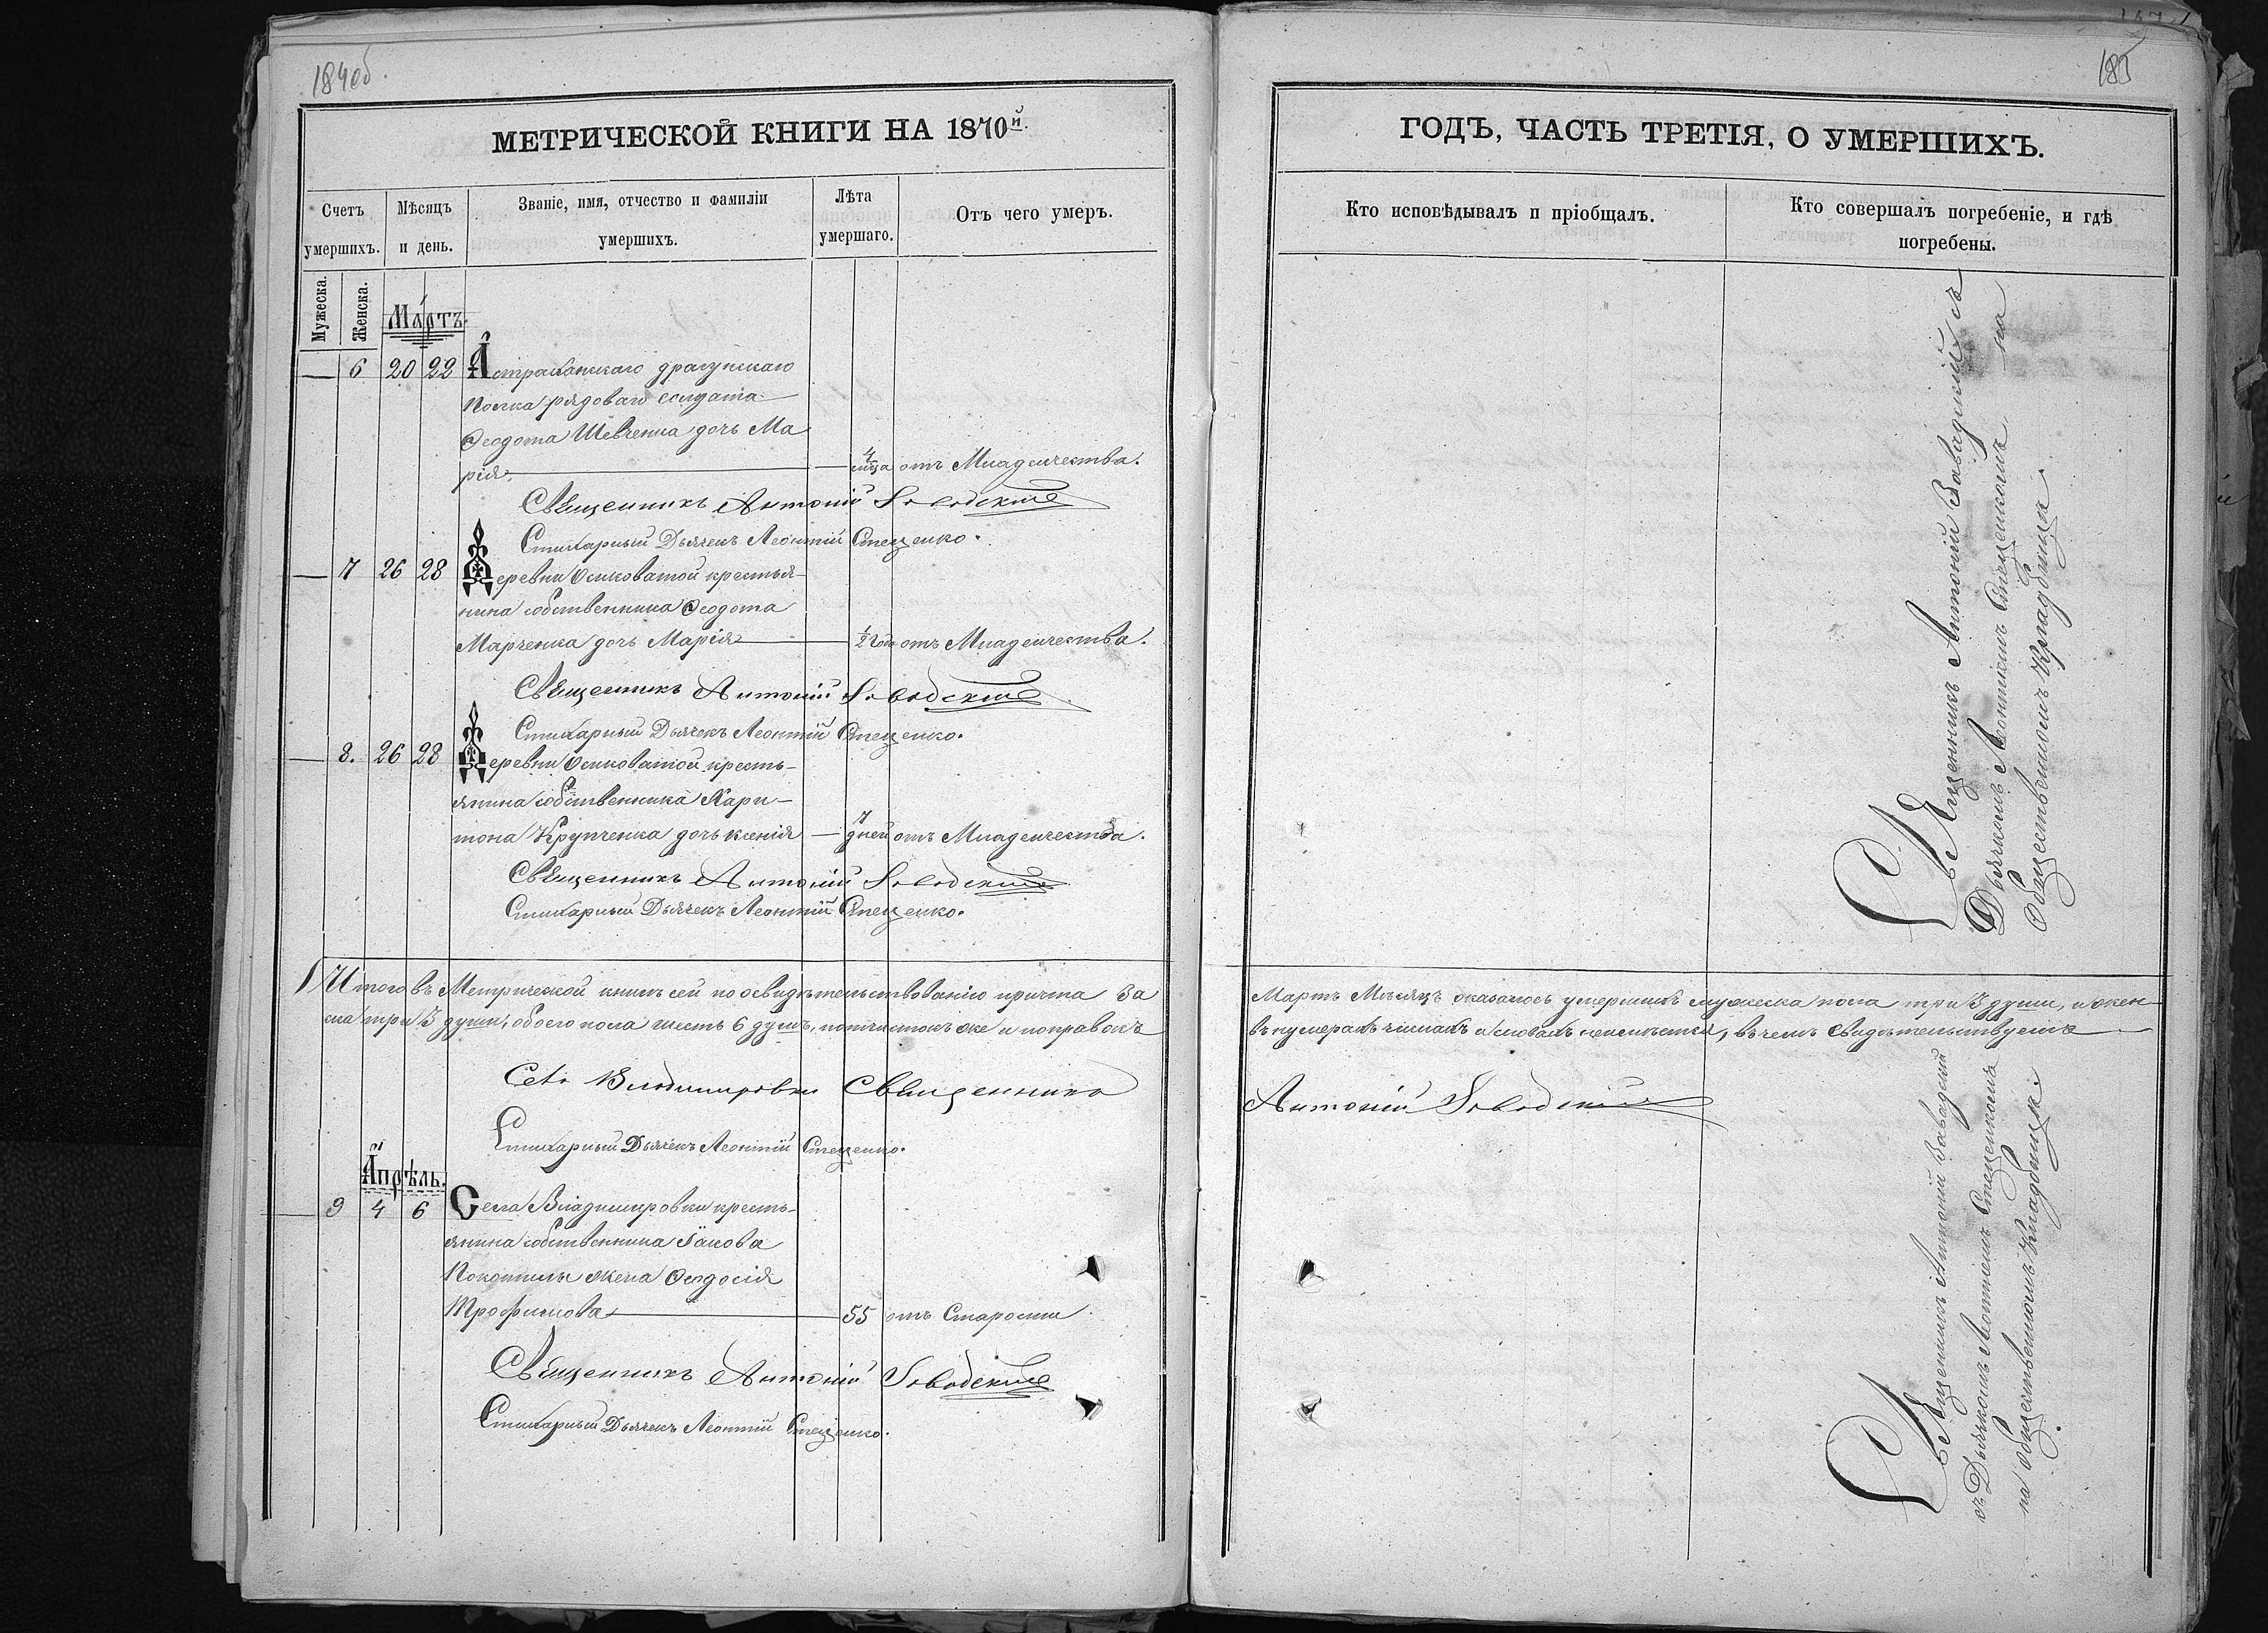 184об.
МЕТРИЧЕСКОЙ КНИГИ НА 1870й.
Счетъ умершихъ.
Мѣсяцъ и день.
Званіе, имя, отчество и фамиліи умершихъ.
Лѣта умершаго.
Отъ чего умеръ.
Мужеска.
Женска.
Мартъ.
— 6 20 22 Астраханскаго драгунскаго
полка рядоваго солдата
Ѳеодота Шевченка дочь Ма
рія. — 4 мца отъ Младенчества.
Священникъ Антоній Заводскій
Стихарный Дьячекъ Леонтій Стеценко.
— 7 26 28 Деревни Осиковатой крестья-
нина собственника Ѳеодота
Марченка дочь Марія — ½ года отъ Младенчества.
Священникъ Антоній Заводскій
Стихарный Дьячекъ Леонтій Стеценко.
— 8. 26 28 Деревни Осиковатой кресть-
янина собственника Хари-
тона Крупченка дочь Ксенія — 7 дней отъ Младенчества.
Священникъ Антоній Заводскій
Стихарный Дьячекъ Леонтій Стеценко.
Итого въ Метрической книгѣ сей по освидѣтельствованію причта За
ска три 3 души, обоего пола шесть 6 душъ, почистокъ же и поправокъ
Села Владимировки Священникъ
Стихарный Дьячекъ Леонтій Стеценко.
Апрѣль.
— 9 4 6 Села Владимировки кресть-
янина собственника Іакова
Покотила жена Ѳеодосія
Трофимова — 55 отъ Старости
Священникъ Антоній Заводскій
Стихарный Дьячекъ Леонтій Стеценко.
185
ГОДЪ, ЧАСТЬ ТРЕТІЯ, О УМЕРШИХЪ.
Кто исповѣдывалъ и пріобщалъ.
Кто совершалъ погребеніе, и гдѣ
погребены.
Священникъ Антоній Завадскій съ
Дьячкомъ Леонтіемъ Стеценкомъ на
Общественномъ Кладбищѣ.
Мартъ Мѣсяцъ оказалось умершихъ мужеска пола три 3 души, и жен-
въ нумерахъ числахъ и словахъ неимѣется, въ чемъ Свидѣтельствуемъ
Антоній Заводскій
Священникъ Антоній Завадскій
съ Дьячкомъ Леонтіемъ Стеценкомъ
на Общественномъ Кладбищѣ.